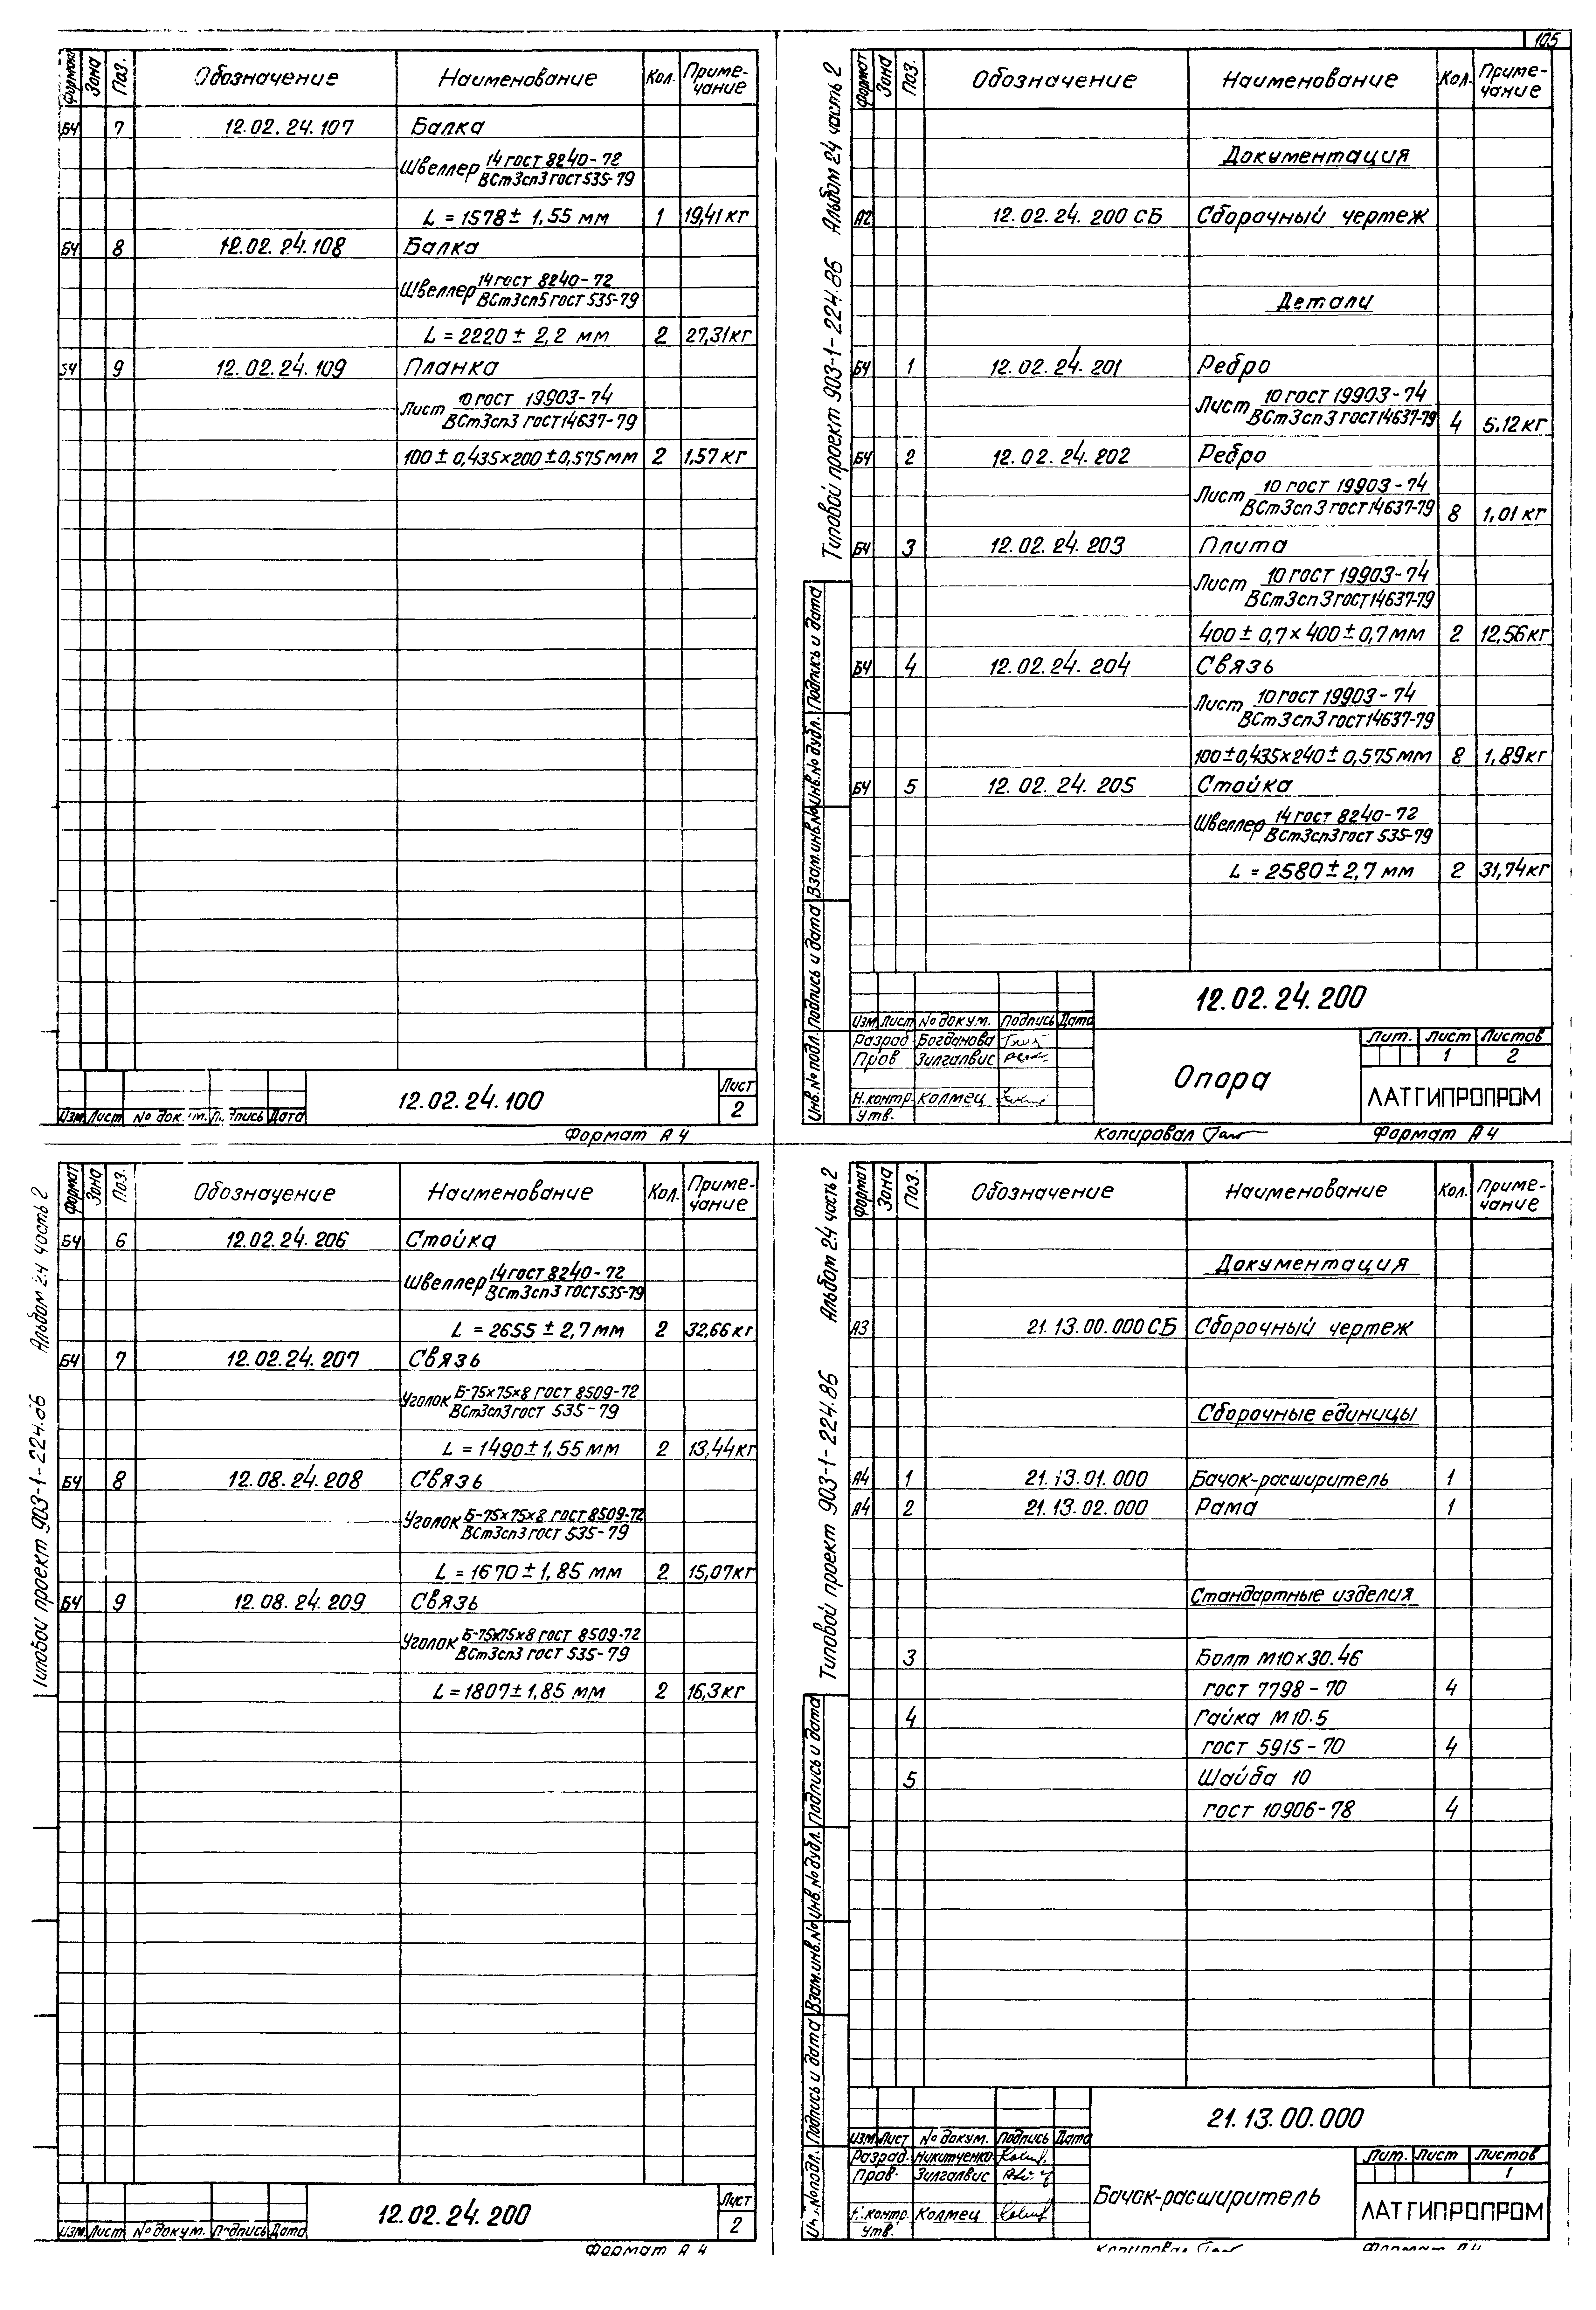 105
Формат Зона Поз. Обозначение Наименование Кол. Приме-
чание
БЧ 7 12.02.24.107 Балка
Швеллер 14 гост 8240-72
ВСт3сп3 гост 535-79
L = 1578 ± 1,55 мм 1 19,41 кг
БЧ 8 12.02.24.108 Балка
Швеллер 14 гост 8240-72
ВСт3сп5 гост 535-79
L = 2220 ± 2,2 мм 2 27,31 кг
БЧ 9 12.02.24.109 Планка
Лист 10 гост 19903-74
ВСт3сп3 гост 14637-79
100 ± 0,435 × 200 ± 0,575 мм 2 1,57 кг
Изм Лист № док.м. Подпись Дата
12.02.24.100
Лист
2
Формат А4
Типовой проект 903-1-224.86 Альбом 24 часть 2
Формат Зона Поз. Обозначение Наименование Кол. Приме-
чание
Документация
А2 12.02.24.200 СБ Сборочный чертеж
Детали
БЧ 1 12.02.24.201 Ребро
Лист 10 гост 19903-74
ВСт3сп3 гост 14637-79 4 5,12 кг
БЧ 2 12.02.24.202 Ребро
Лист 10 гост 19903-74
ВСт3сп3 гост 14637-79 8 1,01 кг
БЧ 3 12.02.24.203 Плита
Лист 10 гост 19903-74
ВСт3сп3 гост 14637-79
400 ± 0,7 × 400 ± 0,7 мм 2 12,56 кг
БЧ 4 12.02.24.204 Связь
Лист 10 гост 19903-74
ВСт3сп3 гост 14637-79
100 ± 0,435 × 240 ± 0,575 мм 8 1,89 кг
БЧ 5 12.02.24.205 Стойка
Швеллер 14 гост 8240-72
ВСт3сп3 гост 535-79
L = 2580 ± 2,7 мм 2 31,74 кг
Инв.№ подл. Подпись и дата Взам.инв.№ Инв.№ дубл. Подпись и дата
12.02.24.200
Изм Лист № докум. Подпись Дата
Разраб Богданова
Пров Зилгалвис
Н.контр. Колмец
Утв.
Опора
Лит. Лист Листов
1 2
ЛАТГИПРОПРОМ
Копировал Формат А4
Типовой проект 903-1-224.86 Альбом 24 часть 2
Формат Зона Поз. Обозначение Наименование Кол. Приме-
чание
БЧ 6 12.02.24.206 Стойка
Швеллер 14 гост 8240-72
ВСт3сп3 гост 535-79
L = 2655 ± 2,7 мм 2 32,66 кг
БЧ 7 12.02.24.207 Связь
Уголок Б-75×75×8 гост 8509-72
ВСт3сп3 гост 535-79
L = 1490 ± 1,55 мм 2 13,44 кг
БЧ 8 12.08.24.208 Связь
Уголок Б-75×75×8 гост 8509-72
ВСт3сп3 гост 535-79
L = 1670 ± 1,85 мм 2 15,07 кг
БЧ 9 12.08.24.209 Связь
Уголок Б-75×75×8 гост 8509-72
ВСт3сп3 гост 535-79
L = 1807 ± 1,85 мм 2 16,3 кг
Изм Лист № докум. Подпись Дата
12.02.24.200
Лист
2
Формат А4
Типовой проект 903-1-224.86 Альбом 24 часть 2
Формат Зона Поз. Обозначение Наименование Кол. Приме-
чание
Документация
А3 21.13.00.000 СБ Сборочный чертеж
Сборочные единицы
А4 1 21.13.01.000 Бачок-расширитель 1
А4 2 21.13.02.000 Рама 1
Стандартные изделия
3 Болт М10×30.46
гост 7798-70 4
4 Гайка М10.5
гост 5915-70 4
5 Шайба 10
гост 10906-78 4
Инв.№ подл. Подпись и дата Взам.инв.№ Инв.№ дубл. Подпись и дата
21.13.00.000
Изм Лист № докум. Подпись Дата
Разраб. Никитченко
Пров. Зилгалвис
Н.контр. Колмец
Утв.
Бачок-расширитель
Лит. Лист Листов
1
ЛАТГИПРОПРОМ
Копировал Формат А4